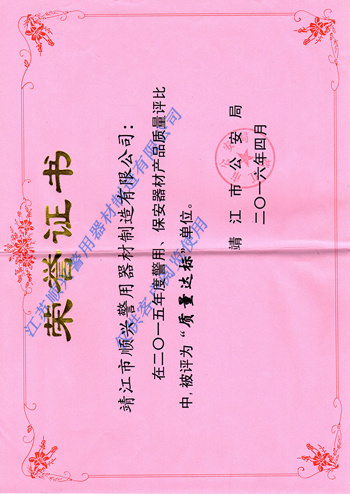 荣誉证书
靖江市顺兴警用器材制造有限公司：
在二〇一五年度警用、保安器材产品质量评比
中，被评为“质量达标”单位。
靖江市公安局
二〇一六年四月
江苏顺兴警用器材制造有限公司
仅供客户浏览使用